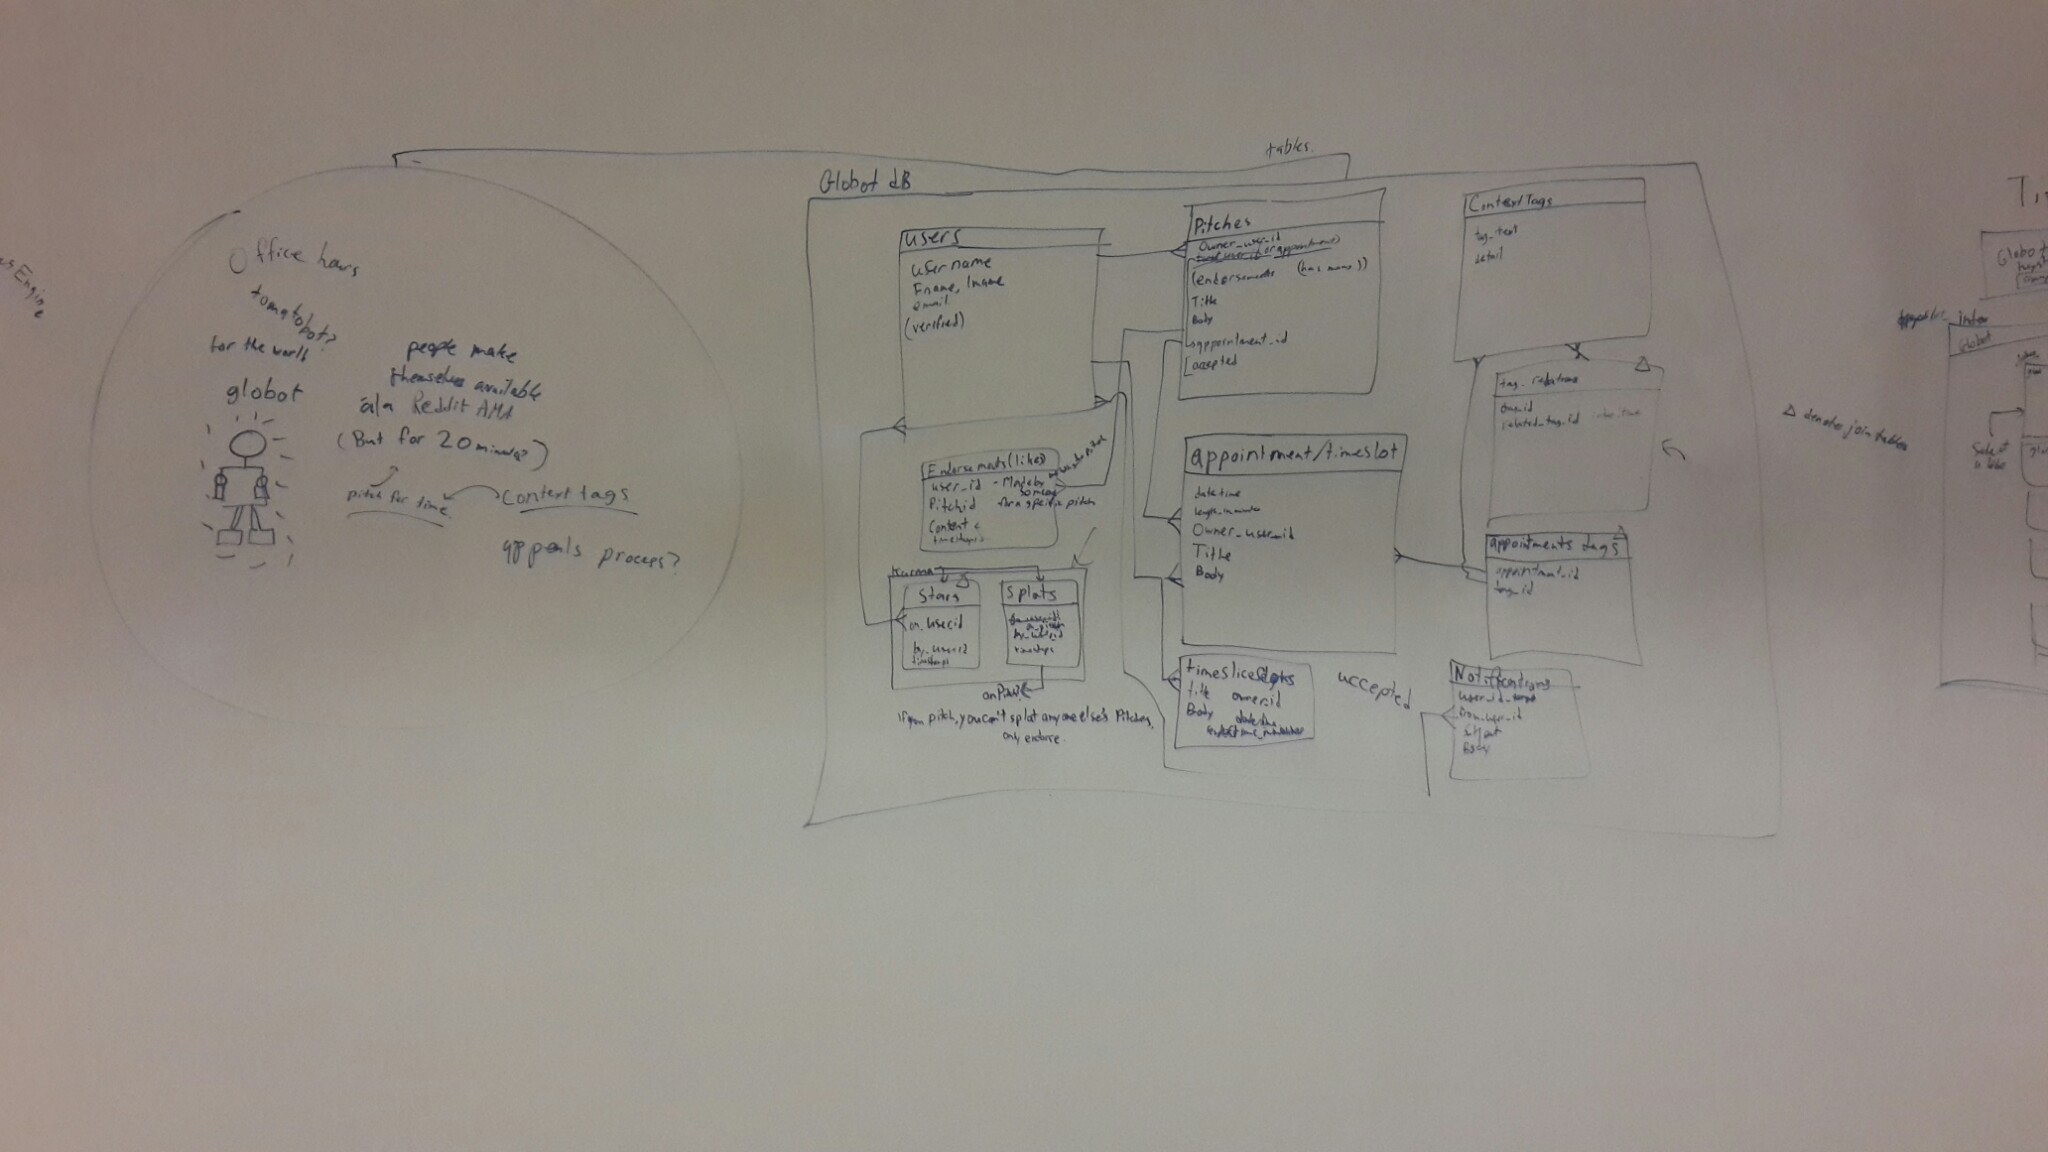 Engine
Office hours
tomatobot?
for the world
globot
people make
themselves available
ála Reddit AMA
(But for 20 minutes?)
pitch for time
Context tags
appeals process?
tables
Globot dB
users
username
Fname, lname
email
(verified)
Pitches
Owner_user_id
(endorsements (has many))
Title
Body
appointment_id
accepted
Context Tags
tag_text
detail
tag_id
related_tag_id
△ denotes join tables
Endorsements (likes)
user_id - Made by
someone
Pitch id for a specific pitch
Content
timestamps
appointment/timeslot
datetime
length_in_minutes
Owner_user_id
Title
Body
appointments tags
appointment_id
tag_id
Karma
Stars
on_userid
by_userid
timestamps
Splats
timestamps
If you pitch, you can't splat anyone else's Pitches,
only endorse.
title owner_id
Body
accepted
Notifications
user_id
from_user_id
Body
Index
Globot
Select
a